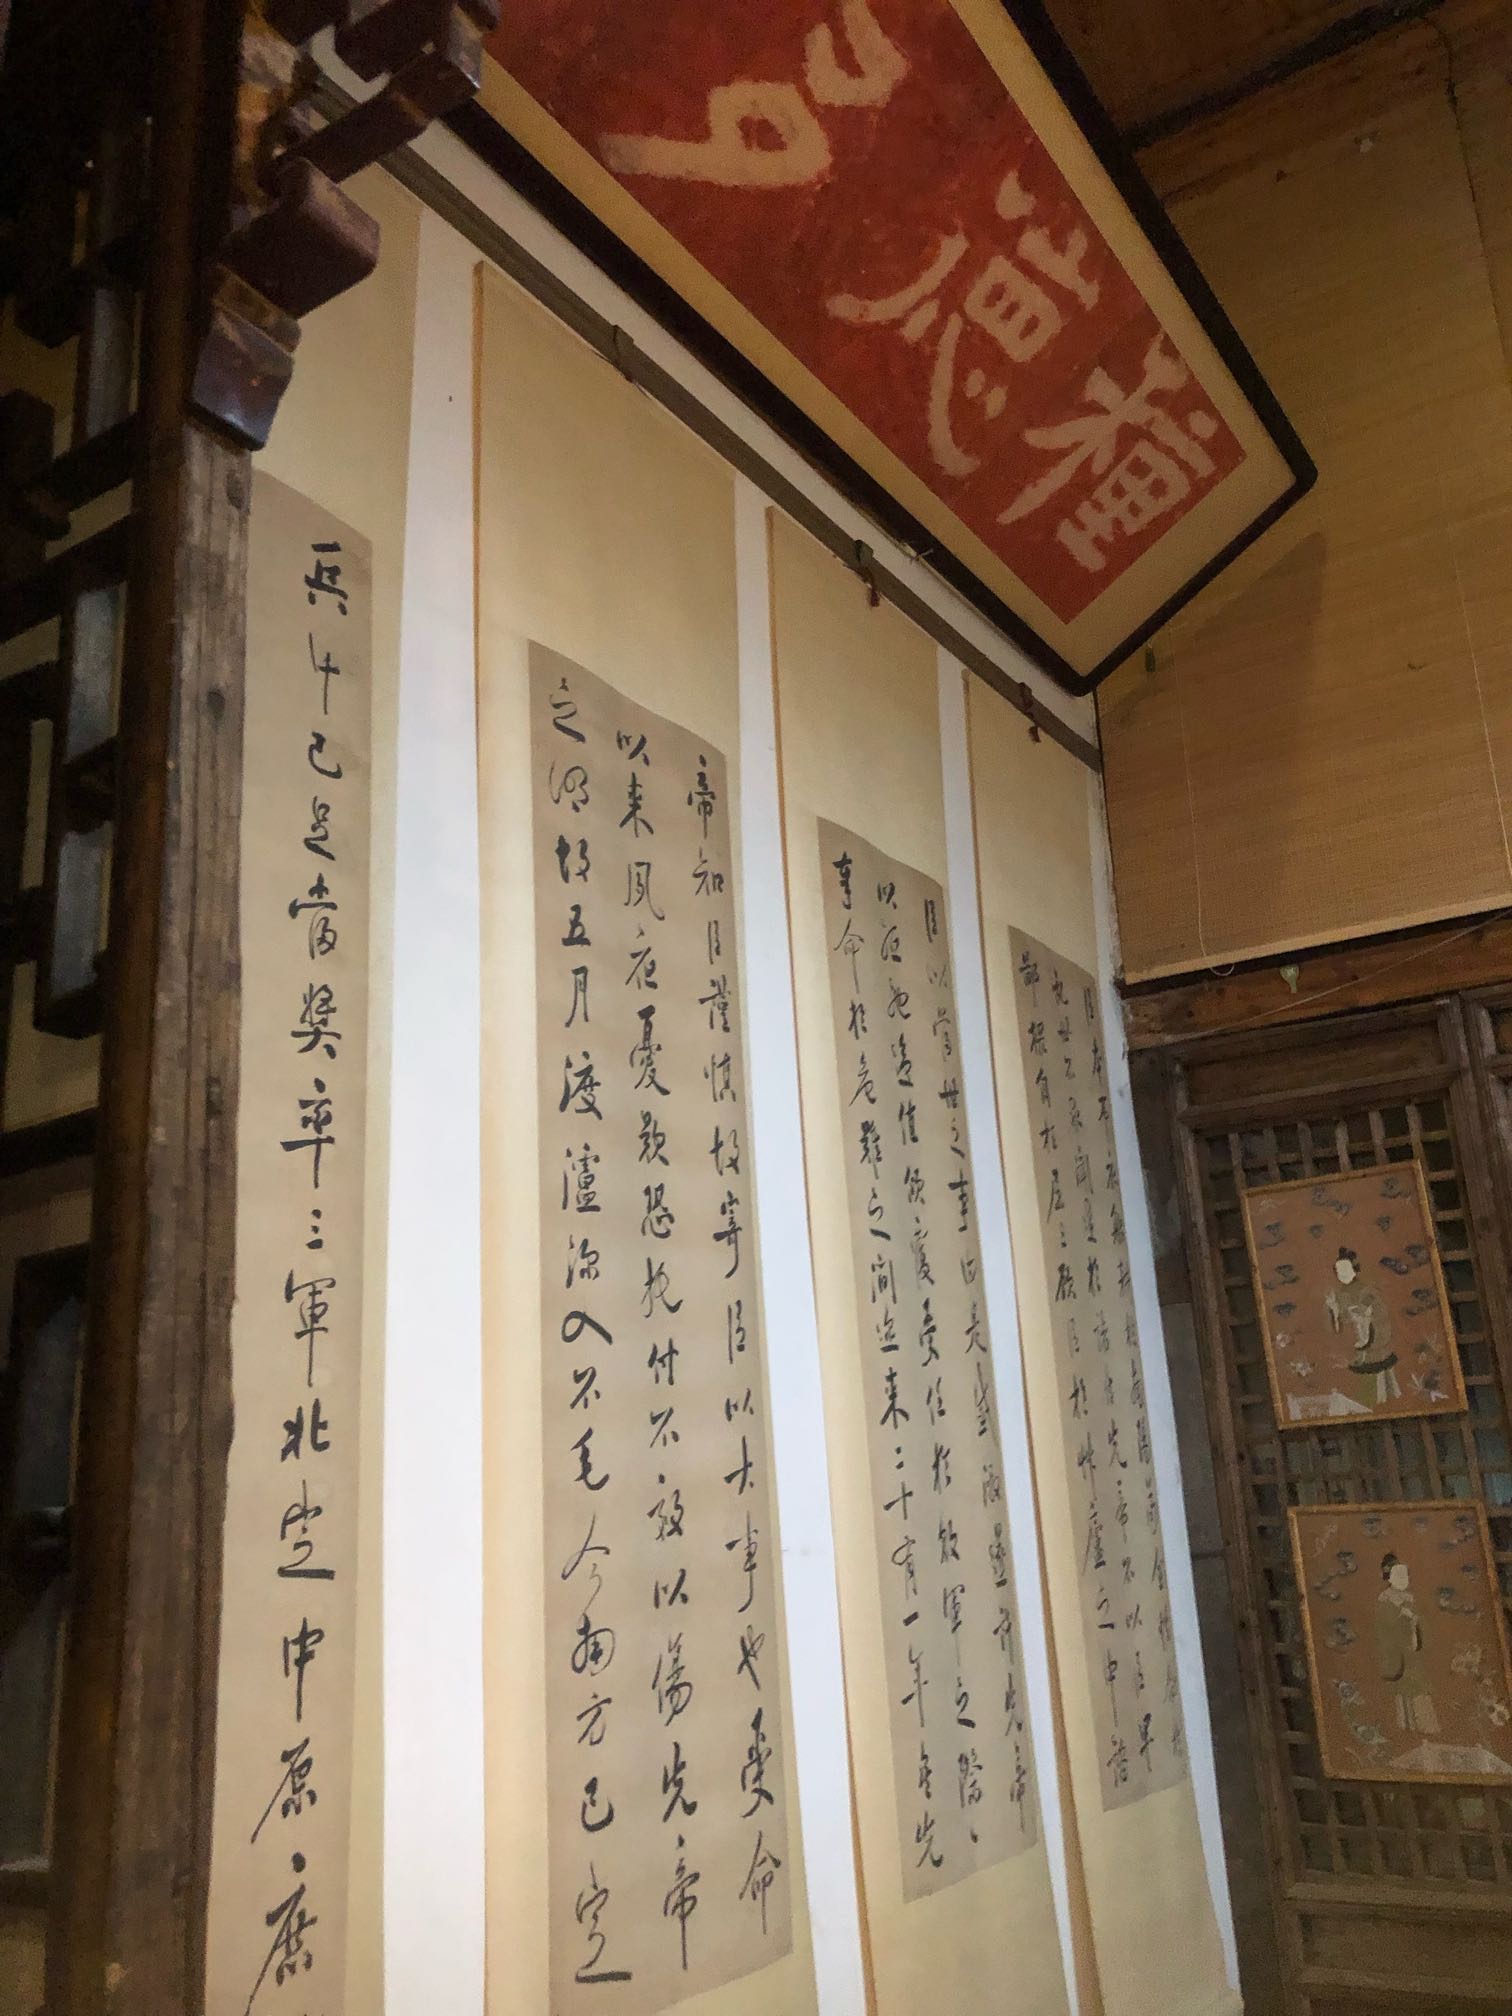 臣本布衣躬耕於南陽苟全性命於
亂世不求聞達於諸侯先帝不以臣卑
鄙猥自枉屈三顧臣於草廬之中諮
臣以當世之事由是感激遂許先帝
以驅馳後值傾覆受任於敗軍之際
奉命於危難之間迩来二十有一年矣先
帝知臣謹慎故寄臣以大事也受命
以来夙夜憂歎恐托付不效以傷先帝
之明故五月渡瀘深入不毛今南方已定
兵甲已足當獎率三軍北定中原庶